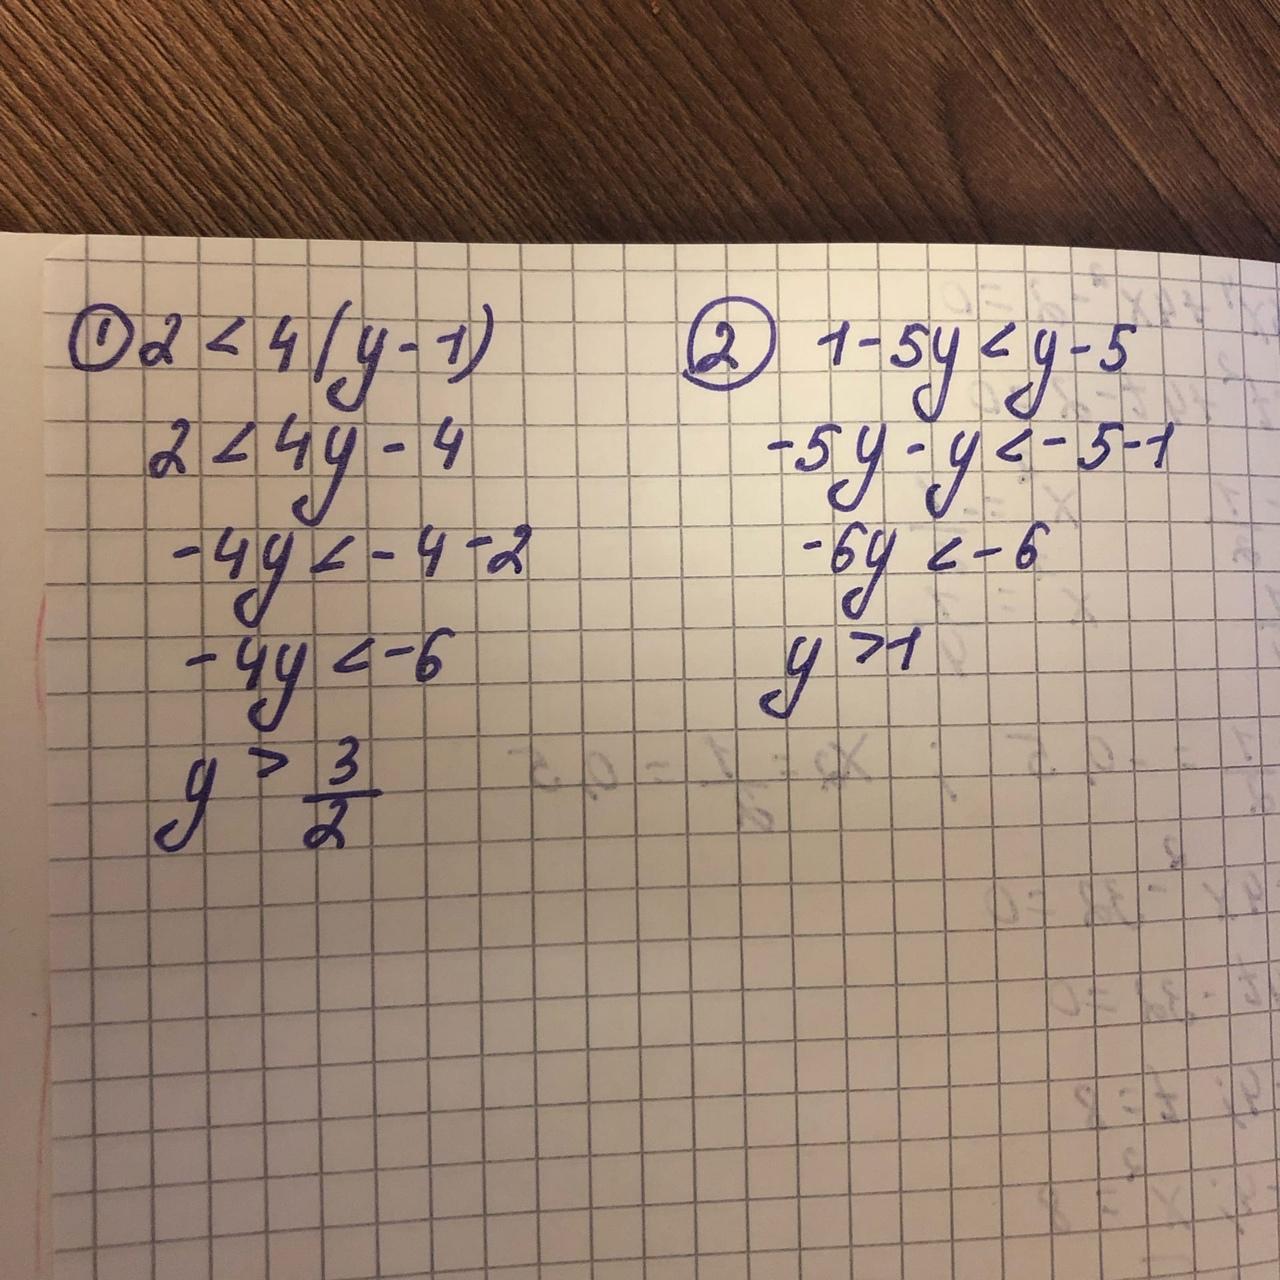 ① 2 < 4(y-1)
2 < 4y - 4
-4y < -4 -2
-4y < -6
y > 3/2
② 1-5y < y-5
-5y - y < -5-1
-6y < -6
y > 1